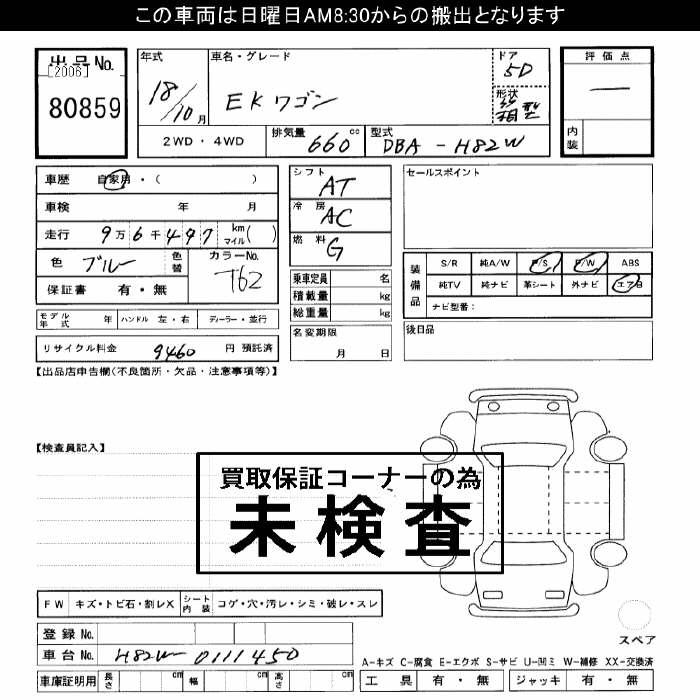 この車両は日曜日AM8:30からの搬出となります
出品No.
[2006]
80859
年式
18/10月
車名・グレード
EKワゴン
ドア
5D
形状
箱型
2WD・4WD
排気量
660cc
型式
DBA-H82W
評価点
―
内装
車歴 自家用・( )
車検 年 月
走行 9万6千497 km マイル( )
色 ブルー 色替
カラーNo. T62
保証書 有・無
モデル年式 年 ハンドル 左・右 ディーラー・並行
リサイクル料金 9460 円 預託済
シフト AT
冷房 AC
燃料 G
乗車定員 名
積載量 kg
総重量 kg
名変期限
月 日
セールスポイント
装備品
S/R 純A/W P/S P/W ABS
純TV 純ナビ 革シート 外ナビ エアB
ナビ型番:
後日品
【出品店申告欄(不良箇所・欠品・注意事項等)】
【検査員記入】
買取保証コーナーの為
未検査
FW キズ・トビ石・割レX シート内装 コゲ・穴・汚レ・シミ・破レ・スレ
登録No.
車台No. H82W-0111450
車庫証明用 長さ cm 幅 cm 高さ cm
スペア
A-キズ C-腐食 E-エクボ S-サビ U-凹ミ W-補修 XX-交換済
工具 有・無 ジャッキ 有・無